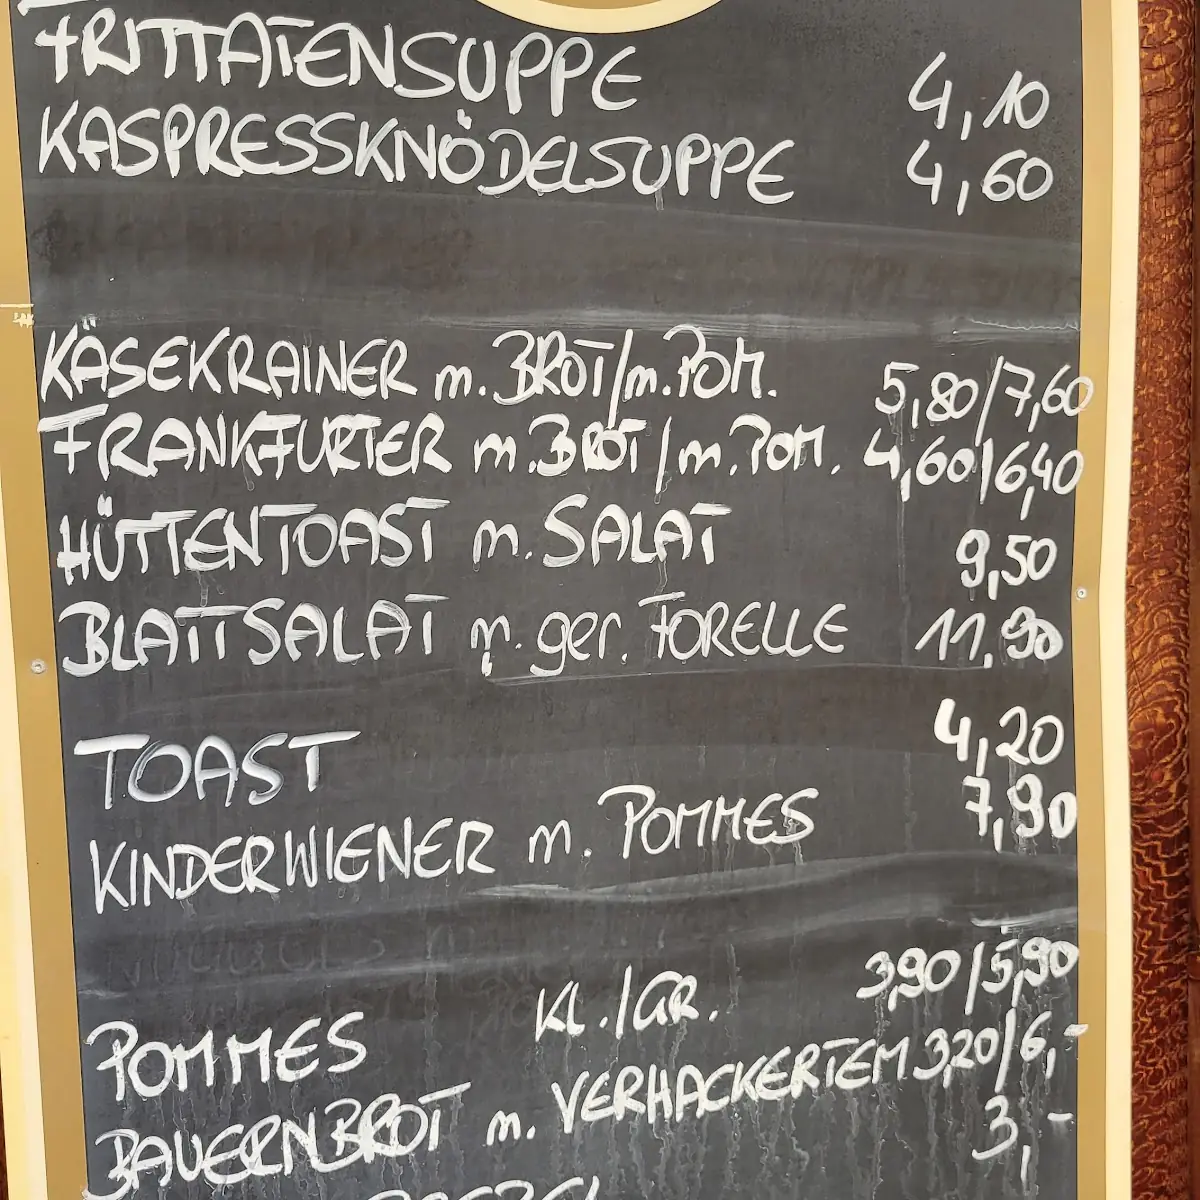 FRITTATENSUPPE 4,10
KASPRESSKNÖDELSUPPE 4,60
KÄSEKRAINER m. BROT/m. POM. 5,80/7,60
FRANKFURTER m. BROT/m. POM. 4,60/6,40
HÜTTENTOAST m. SALAT 9,50
BLATTSALAT m. ger. FORELLE 11,90
TOAST 4,20
KINDERWIENER m. POMMES 7,90
POMMES KL./GR. 3,90/5,90
BAUERNBROT m. VERHACKERTEM 3,20/6,-
3,-